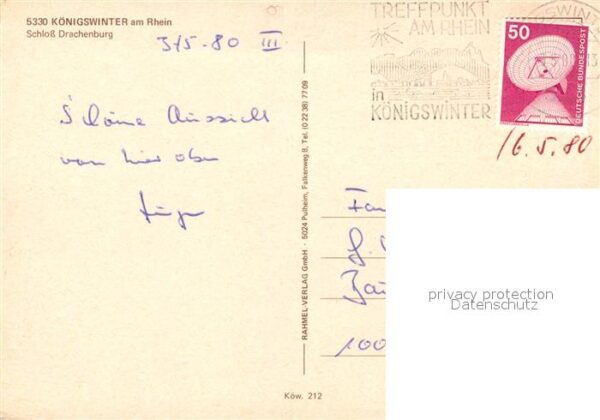 5330 KÖNIGSWINTER am Rhein
Schloß Drachenburg
3/5.80 III
Schöne Aussicht
von hier oben
Jürgen
Köw. 212
RAHMEL-VERLAG GmbH · 5024 Pulheim, Falkenweg 8, Tel. (0 22 38) 77 09
TREFFPUNKT
AM RHEIN
in
KÖNIGSWINTER
50
DEUTSCHE BUNDESPOST
16.5.80
Fam
100
privacy protection
Datenschutz